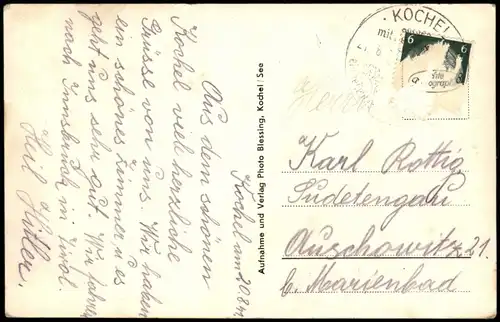 Kochel am 20.8.41
Aus dem schönen
Kochel viel herzliche
Grüsse von uns. Wir haben
ein schönes Zimmer u es
geht uns sehr gut. Wir fahren
noch Innsbruck in Tirol.
Heil Hitler.
Aufnahme und Verlag Photo Blessing, Kochel/See
KOCHEL
mit
6 6
Herrn
Karl Rottig
Sudetengau
Auschowitz 21.
b. Marienbad